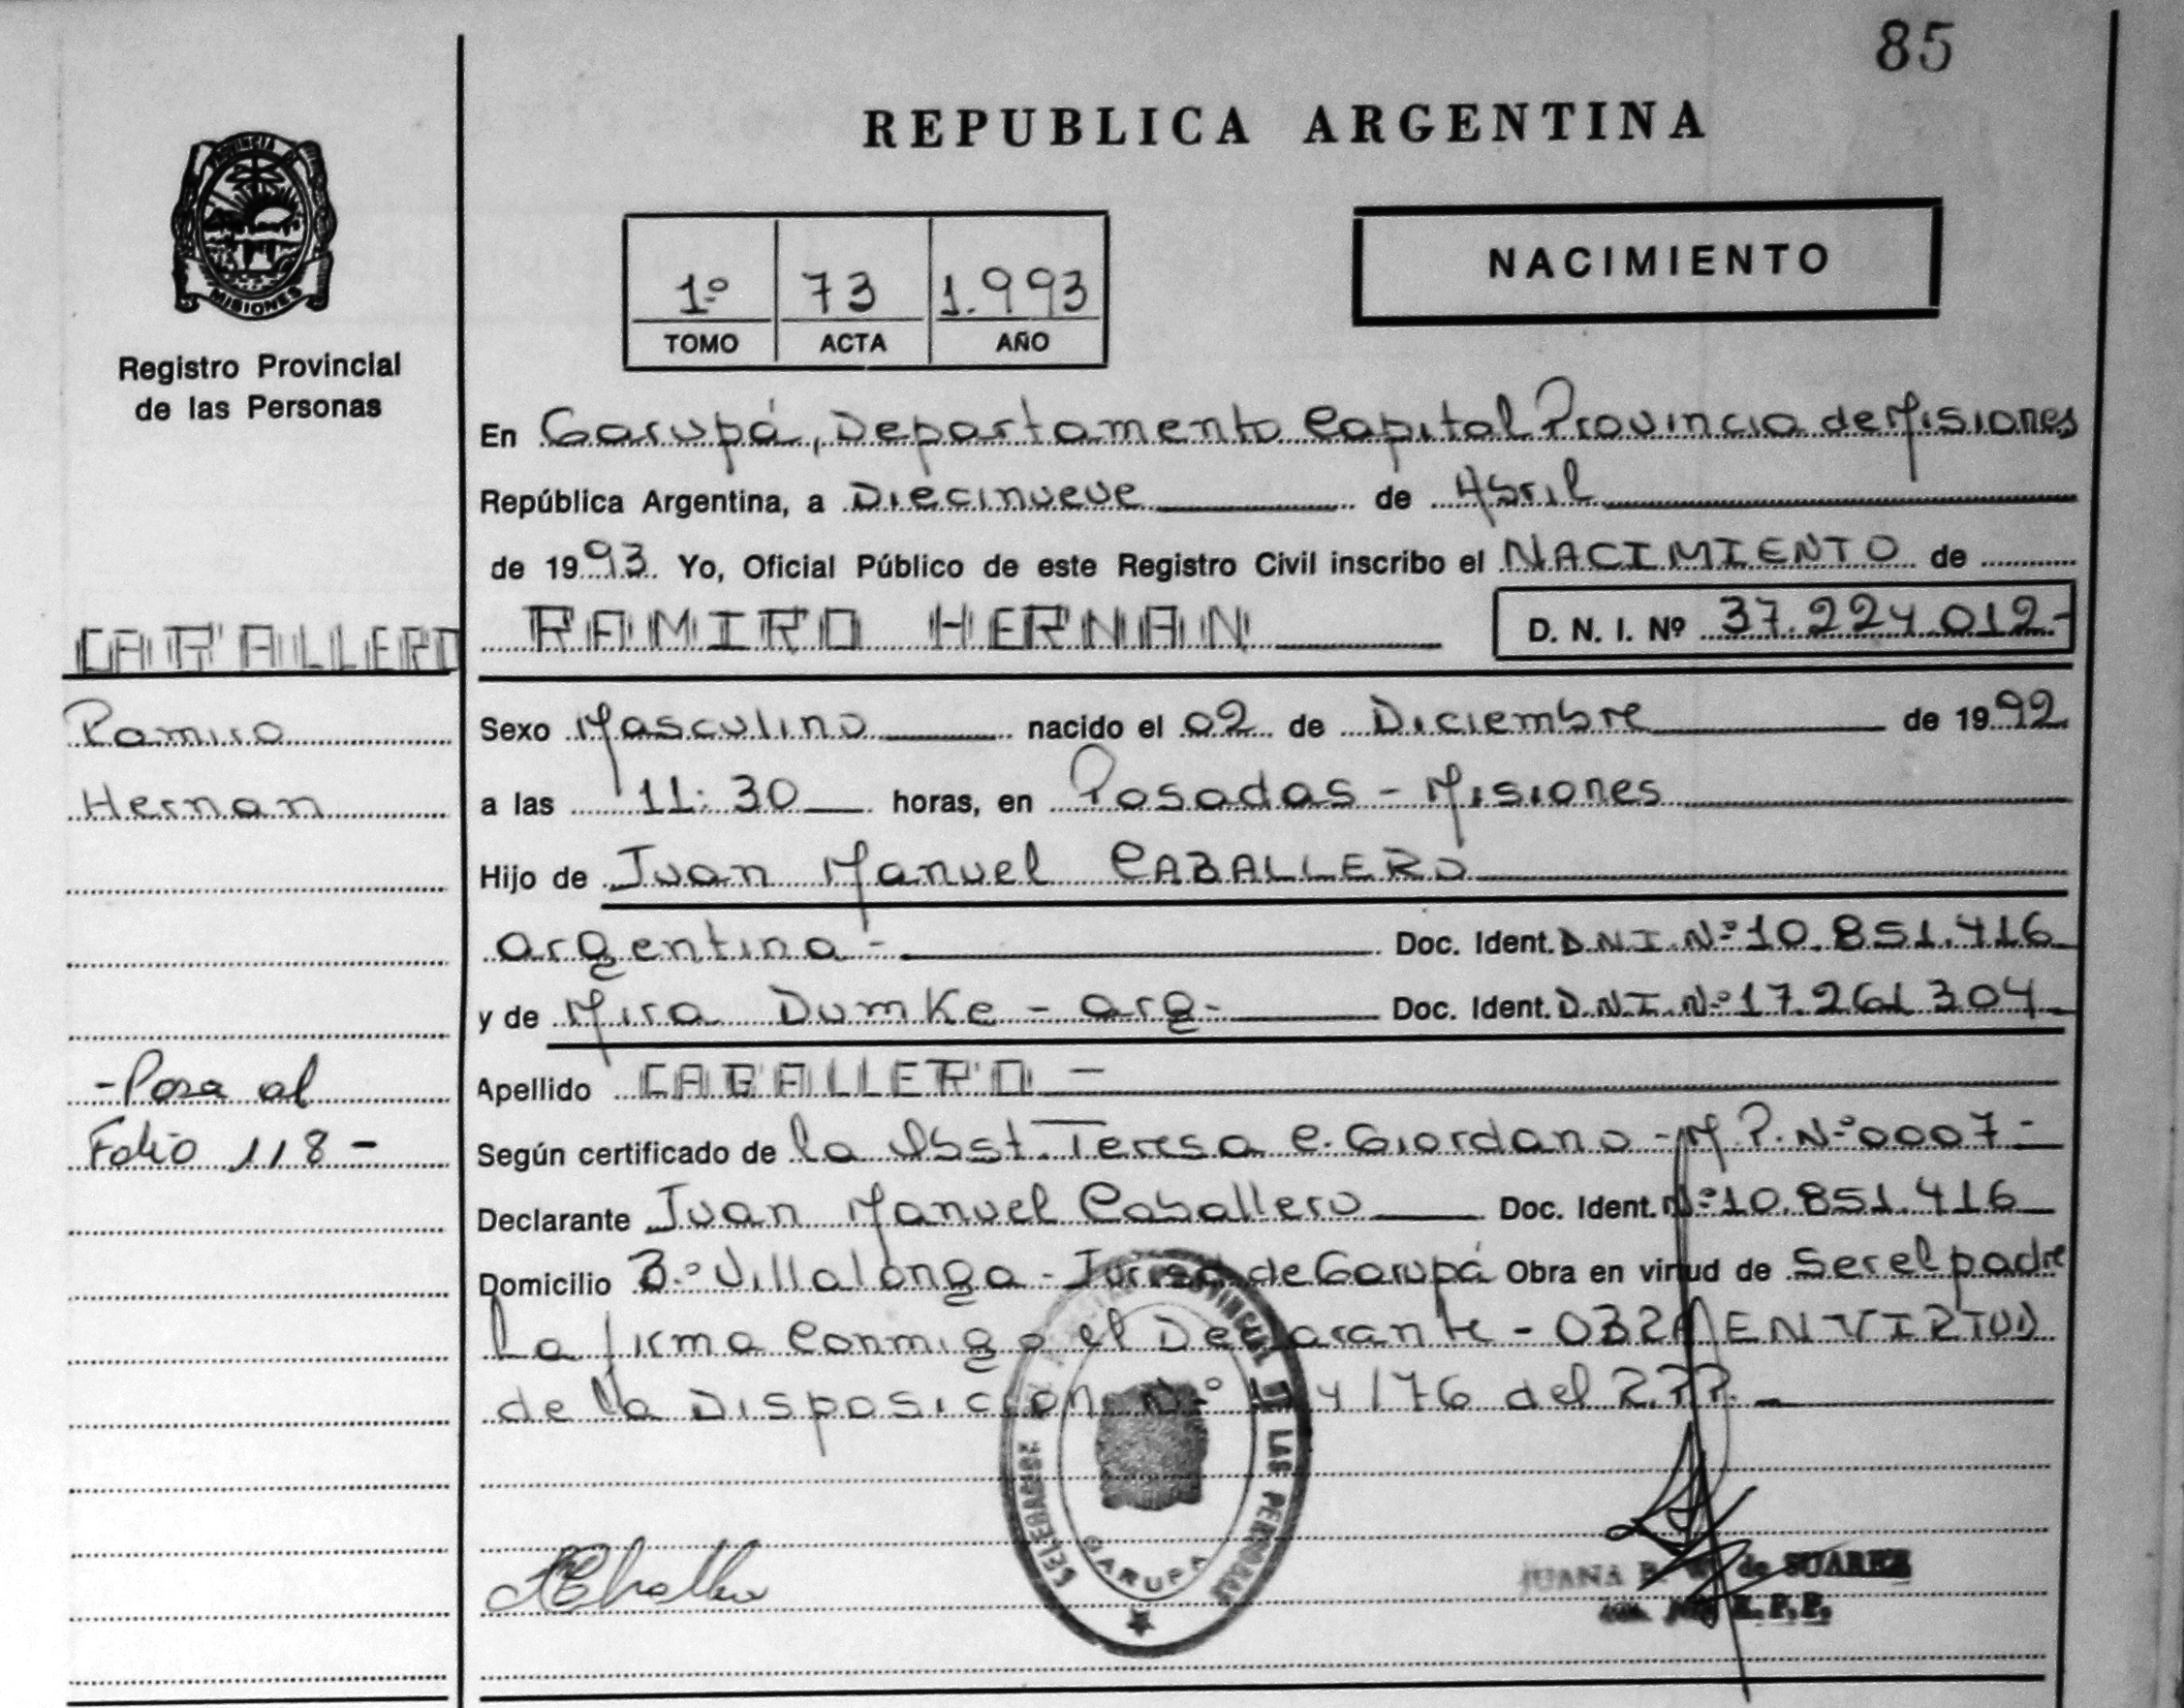 85
REPUBLICA ARGENTINA
PROVINCIA DE
MISIONES
Registro Provincial
de las Personas
1º 73 1.993
TOMO ACTA AÑO
NACIMIENTO
En Garupá, Departamento Capital Provincia de Misiones
República Argentina, a Diecinueve de Abril
de 1993. Yo, Oficial Público de este Registro Civil inscribo el NACIMIENTO de
RAMIRO HERNAN D. N. I. Nº 37.224.012-
CABALLERO
Ramiro
Hernan
Sexo Masculino nacido el 02 de Diciembre de 1992
a las 11:30 horas, en Posadas - Misiones
Hijo de Juan Manuel CABALLERO
argentina - Doc. Ident. D.N.I. Nº 10.851.416
y de Mira Dumke - arg- Doc. Ident. D.N.I. Nº 17.261.304
Apellido CABALLERO -
-Pasa al
Folio 118 -
Según certificado de la Obst. Teresa C. Giordano - M.P. Nº 0007 -
Declarante Juan Manuel Caballero Doc. Ident. Nº 10.851.416
Domicilio Bº Villalonga - Jurisd. de Garupá Obra en virtud de Ser el padre
La firma conmigo el Declarante - OBRA EN VIRTUD
de la Disposición Nº 4/76 del R.P.P.
DE LAS PERSONAS
GARUPA
JUANA B. de SUAREZ
R.P.P.